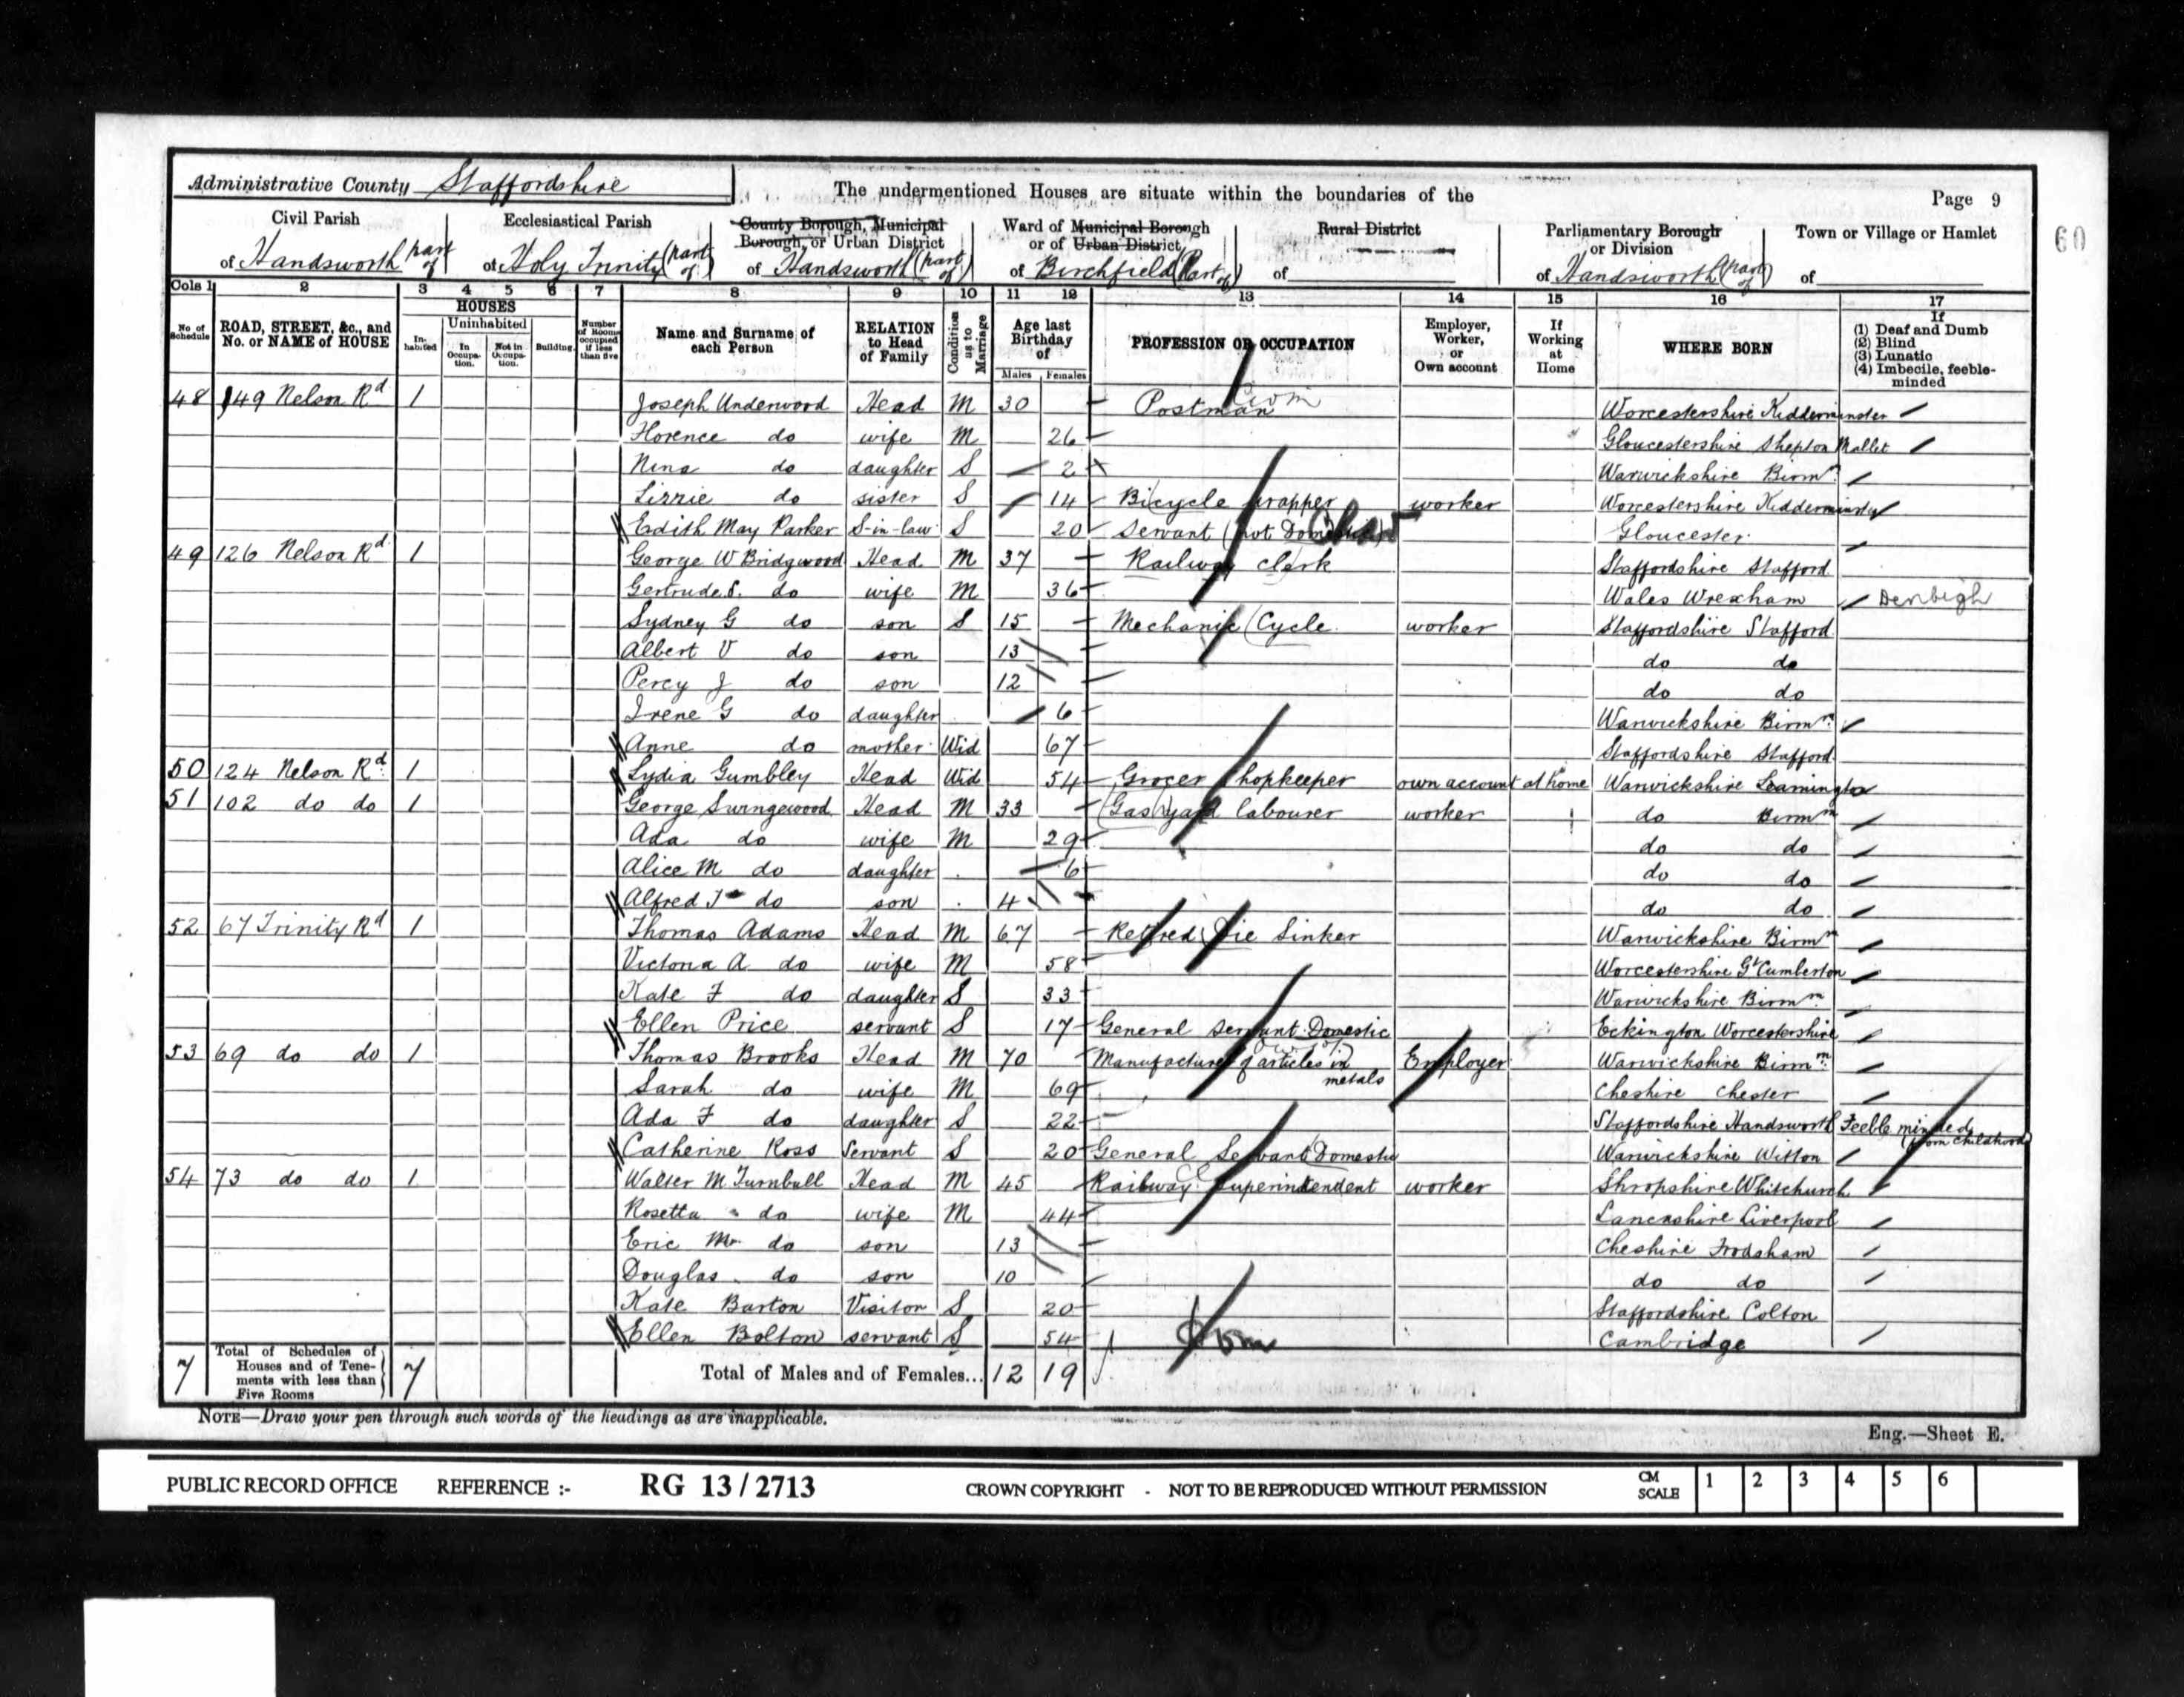 Administrative County Staffordshire
The undermentioned Houses are situate within the boundaries of the
Page 9
60
Civil Parish of Handsworth part of
Ecclesiastical Parish of Holy Trinity (part of)
County Borough, Municipal Borough, or Urban District of Handsworth (part of)
Ward of Municipal Borough or of Urban District of Birchfield (Part of)
Rural District of
Parliamentary Borough or Division of Handsworth (part of)
Town or Village or Hamlet of
Cols 1 2 3 4 5 6 7 8 9 10 11 12 13 14 15 16 17
No of Schedule
ROAD, STREET, &c., and No. or NAME of HOUSE
HOUSES
In-habited
Uninhabited
In Occupa-tion.
Not in Occupa-tion.
Building.
Number of Rooms occupied if less than five
Name and Surname of each Person
RELATION to Head of Family
Condition as to Marriage
Age last Birthday of
Males Females
PROFESSION OR OCCUPATION
Employer, Worker, or Own account
If Working at Home
WHERE BORN
If (1) Deaf and Dumb (2) Blind (3) Lunatic (4) Imbecile, feeble-minded
48 149 Nelson Rd 1 Joseph Underwood Head M 30 Postman Worcestershire Kidderminster
Florence do wife M 26 Gloucestershire Shepton Mallet
Nina do daughter S 2 Warwickshire Birmm
Lizzie do sister S 14 Bicycle wrapper worker Worcestershire Kidderminster
Edith May Parker S-in-law S 20 Servant (not Domestic) Gloucester
49 126 Nelson Rd 1 George W Bridgwood Head M 37 Railway Clerk Staffordshire Stafford
Gertrude S. do wife M 36 Wales Wrexham Denbigh
Sydney G do son S 15 Mechanic (Cycle worker Staffordshire Stafford
Albert V do son 13 do do
Percy J do son 12 do do
Irene G do daughter 6 Warwickshire Birmm
Anne do mother Wid 67 Staffordshire Stafford
50 124 Nelson Rd 1 Lydia Gumbley Head Wid 54 Grocer Shopkeeper own account at home Warwickshire Leamington
51 102 do do 1 George Swingewood Head M 33 Gas Yard labourer worker do Birmm
Ada do wife M 29 do do
Alice M do daughter 6 do do
Alfred J do son 4 do do
52 67 Trinity Rd 1 Thomas Adams Head M 67 Retired Die Sinker Warwickshire Birmm
Victoria A do wife M 58 Worcestershire Gt Cumberton
Kate F do daughter S 33 Warwickshire Birmm
Ellen Price servant S 17 General Servant Domestic Eckington Worcestershire
53 69 do do 1 Thomas Brooks Head M 70 Manufacturer of articles in metals Employer Warwickshire Birmm
Sarah do wife M 69 Cheshire Chester
Ada F do daughter S 22 Staffordshire Handsworth Feeble minded (from childhood)
Catherine Ross Servant S 20 General Servant Domestic Warwickshire Witton
54 73 do do 1 Walter M Turnbull Head M 45 Railway Superintendent worker Shropshire Whitchurch
Rosetta do wife M 44 Lancashire Liverpool
Eric M do son 13 Cheshire Frodsham
Douglas do son 10 do do
Kate Barton Visitor S 20 Staffordshire Colton
Ellen Bolton servant S 54 Dom Cambridge
7 Total of Schedules of Houses and of Tene-ments with less than Five Rooms 7 Total of Males and of Females... 12 19
NOTE—Draw your pen through such words of the headings as are inapplicable.
Eng.—Sheet E.
PUBLIC RECORD OFFICE REFERENCE :- RG 13 / 2713 CROWN COPYRIGHT - NOT TO BE REPRODUCED WITHOUT PERMISSION CM SCALE 1 2 3 4 5 6